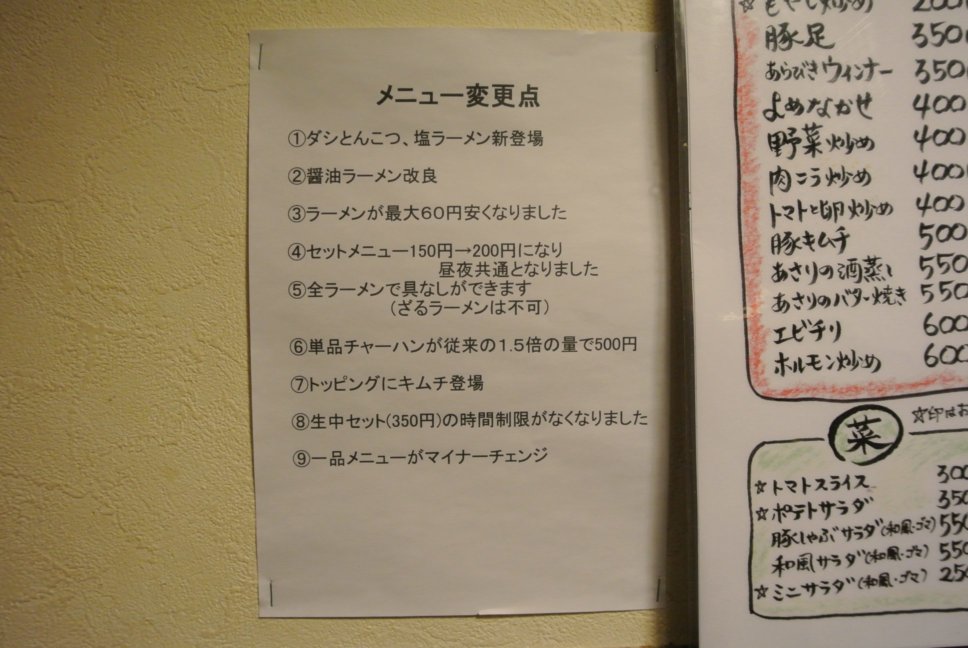 メニュー変更点
①ダシとんこつ、塩ラーメン新登場
②醤油ラーメン改良
③ラーメンが最大60円安くなりました
④セットメニュー150円→200円になり
昼夜共通となりました
⑤全ラーメンで具なしができます
（ざるラーメンは不可）
⑥単品チャーハンが従来の1.5倍の量で500円
⑦トッピングにキムチ登場
⑧生中セット(350円)の時間制限がなくなりました
⑨一品メニューがマイナーチェンジ
☆もやし炒め 200
豚足 350
あらびきウィンナー 350
よめなかせ 400
野菜炒め 400
肉こう炒め 400
トマトと卵炒め 400
豚キムチ 500
あさりの酒蒸し 550
あさりのバター焼き 550
エビチリ 600
ホルモン炒め 600
☆印はお
菜
☆トマトスライス 300
☆ポテトサラダ 350
豚しゃぶサラダ(和風・ゴマ) 550
和風サラダ(和風・ゴマ) 550
☆ミニサラダ(和風・ゴマ) 250